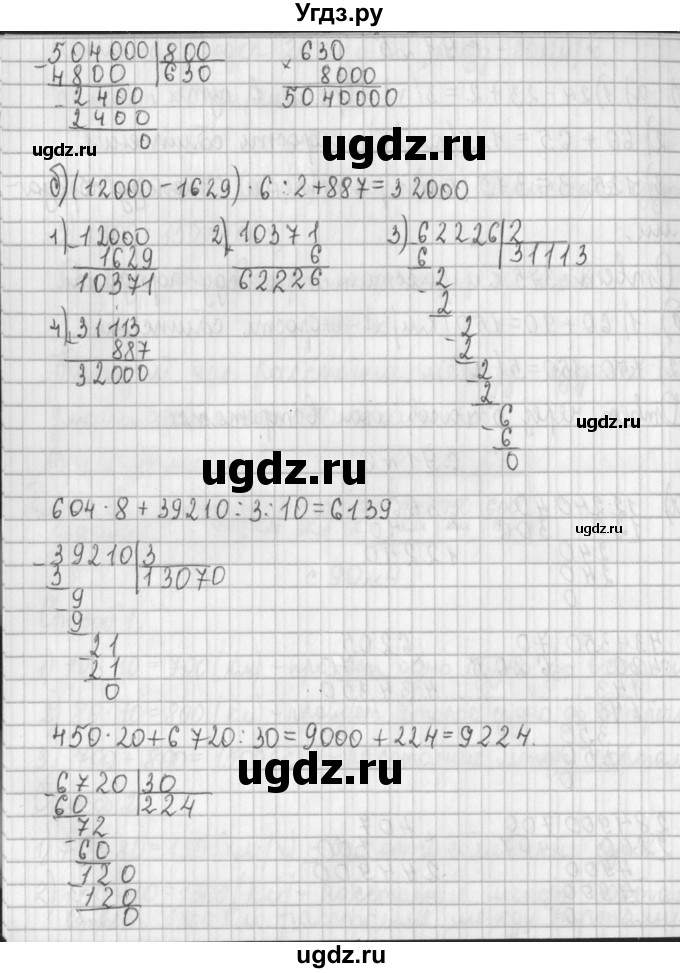 Угдз.ру
504000 | 800    630
- 4800 | 630    × 8000
- 2400    5040000
2400
0
ugdz.ru
ugdz.ru
ugdz.ru
б) (12000 - 1629) · 6 : 2 + 887 = 32000
1) 12000    2) 10371    3) 62226 | 2
- 1629    × 6    6 | 31113
10371    62226    - 2
2
4) 31113    - 2
+ 887    2
32000    - 2
2
- 6
6
0
ugdz.ru
ugdz.ru
604 · 8 + 39210 : 3 : 10 = 6139
ugdz.ru
- 39210 | 3
3 | 13070
- 9
9
- 21
21
0
450 · 20 + 6720 : 30 = 9000 + 224 = 9224.
ugdz.ru
- 6720 | 30
60 | 224
- 72
60
- 120
120
0
ugdz.ru
ugdz.ru
ugdz.ru